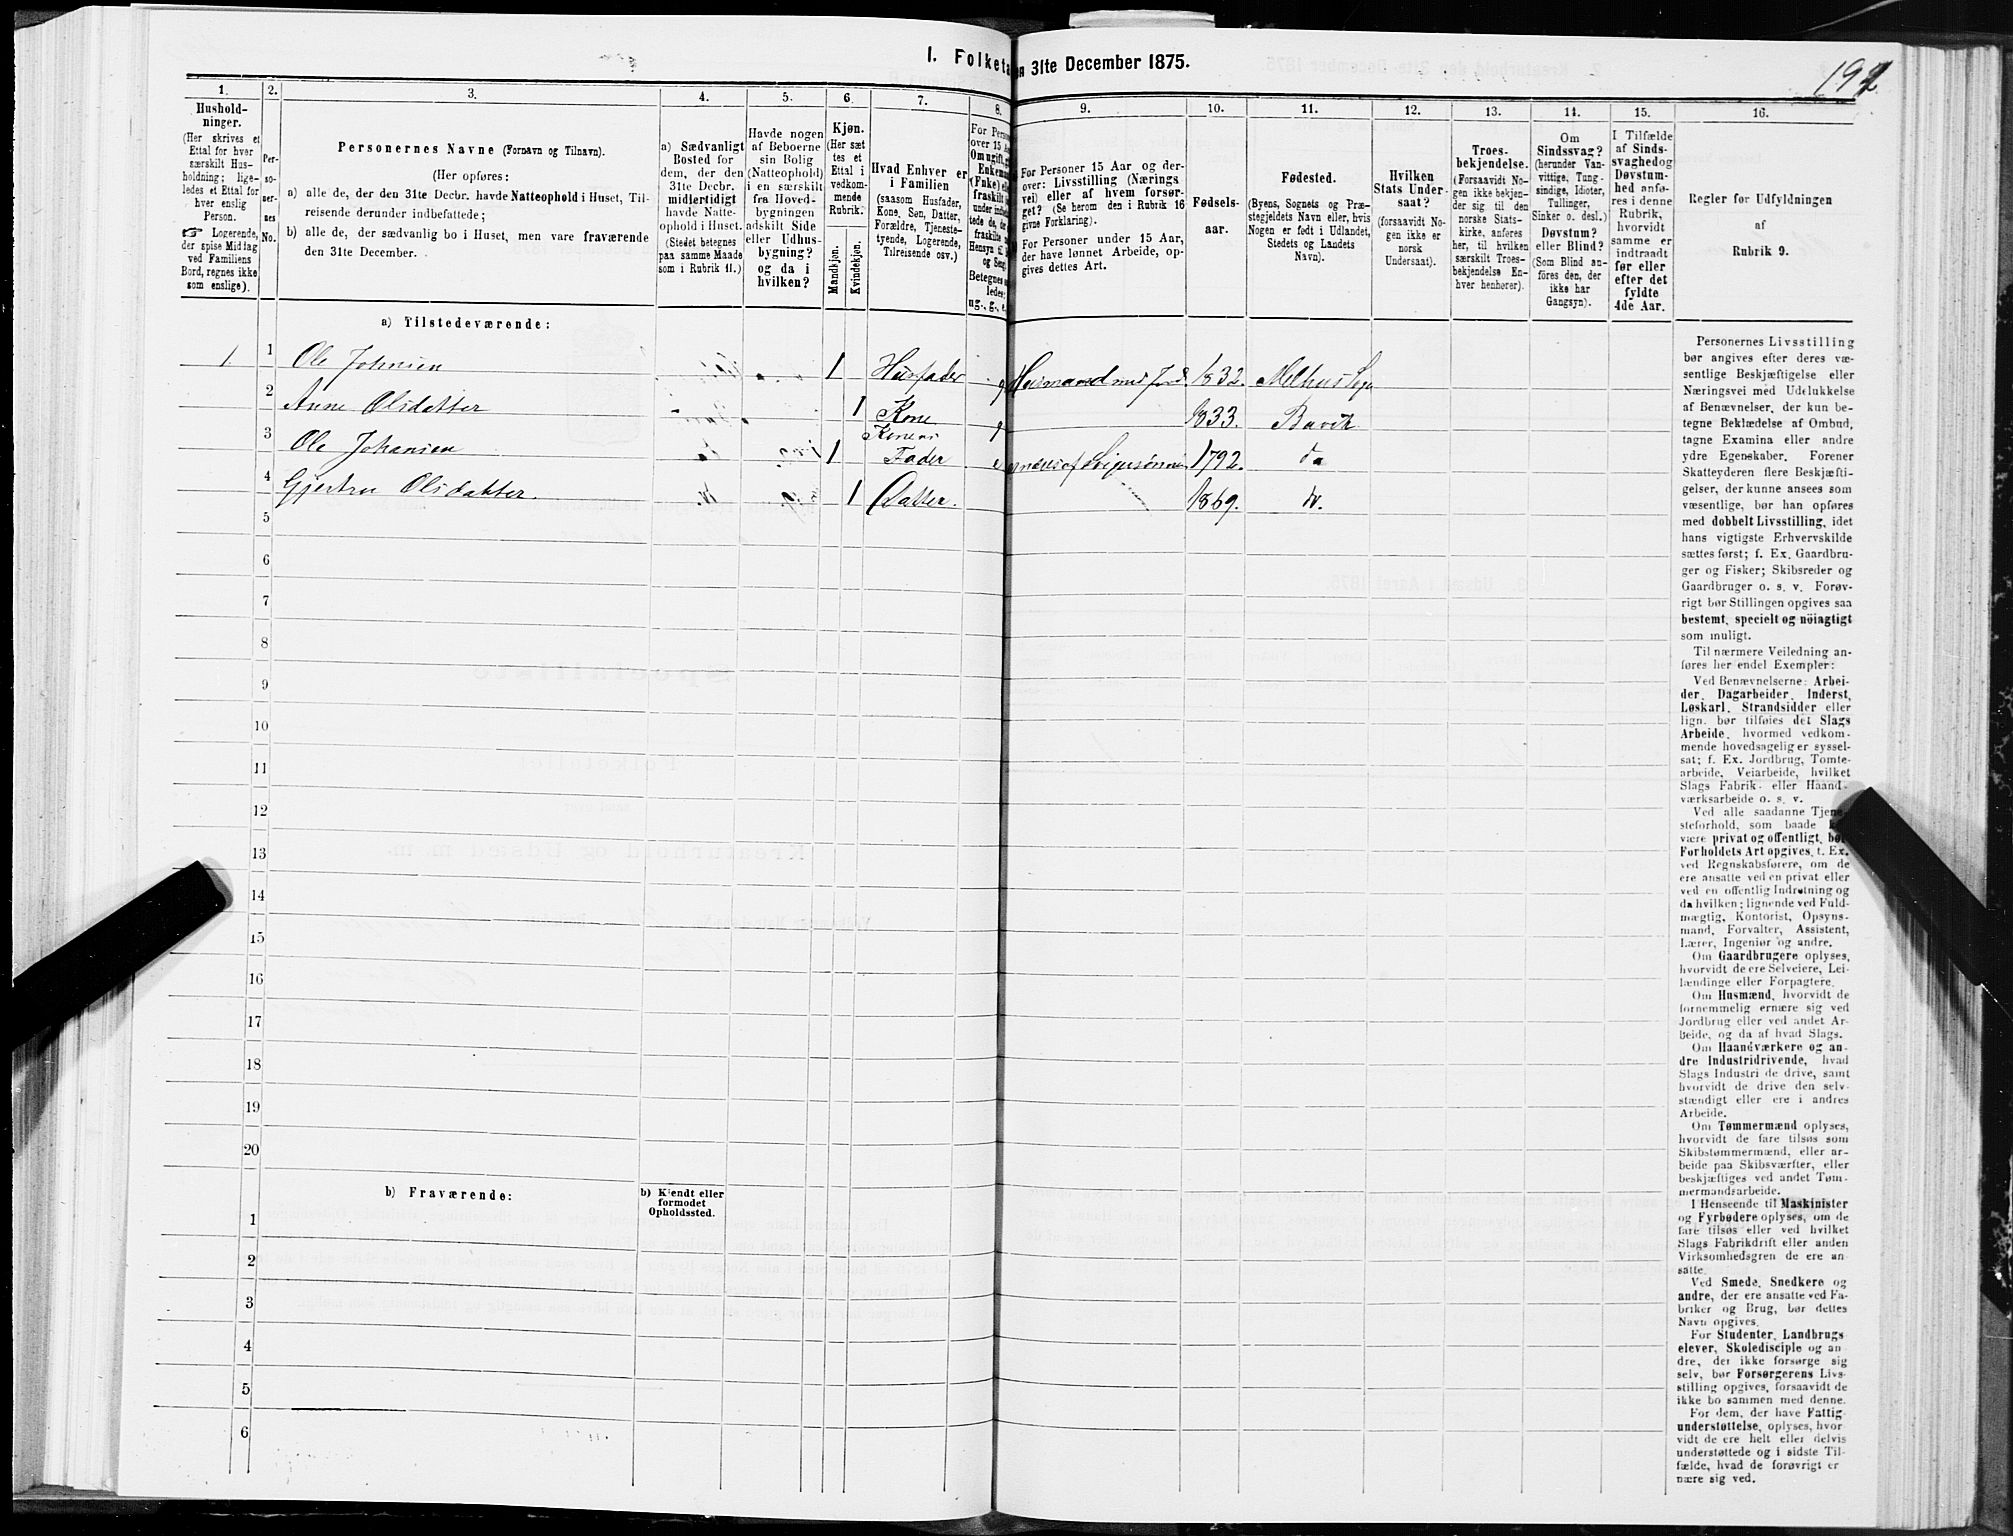 I. Folketa
en 31te December 1875.
192
1.
Hushold-
ninger.
(Her skrives et
Ettal for hver
særskilt Hus-
holdning; lige-
ledes et Ettal for
hver enslig
Person.
☞ Logerende,
der spise Middag
ved Familiens
Bord, regnes ikke
som enslige).
2.
Per-
so-
ner-
nes
No.
3.
Personernes Navne (Fornavn og Tilnavn).
(Her opføres:
a) alle de, der den 31te Decbr. havde Natteophold i Huset, Til-
reisende derunder indbefattede;
b) alle de, der sædvanlig bo i Huset, men vare fraværende
den 31te December.
4.
a) Sædvanligt
Bosted for
dem, der den
31te Decbr.
midlertidigt
havde Natte-
ophold i Huset.
(Stedet betegnes
paa samme Maade
som i Rubrik 11.)
5.
Havde nogen
af Beboerne
sin Bolig
(Natteophold)
i en særskilt
fra Hoved-
bygningen
adskilt Side
eller Udhus-
bygning?
og da i
hvilken?
6.
Kjøn.
(Her sæt
tes et
Ettal i
vedkom-
mende
Rubrik.
Mandkjøn.
Kvindekjøn.
7.
Hvad Enhver er
i Familien
(saasom Husfader,
Kone, Søn, Datter,
Forældre, Tjeneste-
tyende, Logerende,
Tilreisende osv.)
8.
For Perso
over 15 Aa
Om ugift, gi
Enkema
(Enke) ell
fraskilt
under indbe
tede de, de
fraskilte
Hensyn ti
og Seng
Betegnes
ledes:
ug., g., e.
9.
For Personer 15 Aar og der-
over: Livsstilling (Nærings
vei) eller af hvem forsør-
get? (Se herom den i Rubrik 16
givne Forklaring).
For Personer under 15 Aar,
der have lønnet Arbeide, op-
gives dettes Art.
10.
Fødsels-
aar.
11.
Fødested.
(Byens, Sognets og Præ-
stegjeldets Navn eller, hvis
Nogen er født i Udlandet,
Stedets og Landets
Navn).
12.
Hvilken
Stats Under-
saat?
(forsaavidt No-
gen ikke er
norsk
Undersaat).
13.
Troes-
bekjendelse.
(Forsaavidt No-
gen ikke bekjen-
der sig til den
norske Stats-
kirke, anføres
her, til hvilken
særskilt Troes-
bekjendelse En-
hver henhører).
14.
Om
Sindssvag?
(herunder Van-
vittige, Tung-
sindige, Idioter,
Tullinger,
Sinker o. desl.)
Døvstum?
eller Blind?
(Som Blind an-
føres den, der
ikke har
Gangsyn).
15.
I Tilfælde
af Sinds-
svaghed og
Døvstum-
hed anfø-
res i denne
Rubrik,
hvorvidt
samme er
indtraadt
før eller
efter det
fyldte
4de Aar.
16.
Regler for Udfyldningen
af
Rubrik 9.
a) Tilstedeværende:
1 1 Ole Johnsen 1 Husfader g Husmand med Jord 1832. Melhus Sogn
2 Anne Olsdatter 1 Kone g 1833. Buvik
3 Ole Johansen 1 Konens Fader e 1792. do
4 Gjertru Olsdatter. 1 Datter. 1869. do.
5
6
7
8
9
10
11
12
13
14
15
16
17
18
19
20
b) Fraværende:
b) Kjendt eller
formodet
Opholdssted.
1
2
3
4
5
6
Personernes Livsstilling
bør angives efter deres væ-
sentlige Beskjæftigelse eller
Næringsvei med Udelukkelse
af Benævnelser, der kun be-
tegne Beklædelse af Ombud,
tagne Examina eller andre
ydre Egenskaber. Forener
Skatteyderen flere Beskjæfti-
gelser, der kunne ansees som
væsentlige, bør han opføres
med dobbelt Livsstilling, idet
hans vigtigste Erhvervskilde
sættes først; f. Ex. Gaardbru-
ger og Fisker; Skibsreder og
Gaardbruger o. s. v. Forøv-
rigt bør Stillingen opgives saa
bestemt, specielt og nöiagtigt
som muligt.
Til nærmere Veiledning an-
føres her endel Exempler:
Ved Benævnelserne: Arbei-
der, Dagarbeider, Inderst,
Løskarl, Strandsidder eller
lign. bør tilføies det Slags
Arbeide, hvormed vedkom-
mende hovedsagelig er syssel-
sat; f. Ex. Jordbrug, Tomte-
arbeide, Veiarbeide, hvilket
Slags Fabrik- eller Haand-
værksarbeide o. s. v.
Ved alle saadanne Tjene-
steforhold, som baade
være privat og offentligt, bør
Forholdets Art opgives, t. Ex.
ved Regnskabsførere, om de
ere ansatte ved en privat eller
ved en offentlig Indretning og
da hvilken; lignende ved Fuld-
mægtig, Kontorist, Opsyns-
mand, Forvalter, Assistent,
Lærer, Ingeniør og andre.
Om Gaardbrugere oplyses,
hvorvidt de ere Selveiere, Lei-
lændinge eller Forpagtere.
Om Husmænd, hvorvidt de
fornemmelig ernære sig ved
Jordbrug eller ved andet Ar-
beide, og da af hvad Slags.
Om Haandværkere og an-
dre Industridrivende, hvad
Slags Industri de drive, samt
hvorvidt de drive den selv-
stændigt eller ere i andres
Arbeide.
Om Tømmermænd oplyses,
hvorvidt de fare tilsøs som
Skibstømmermænd, eller ar-
beide paa Skibsværfter, eller
beskjæftiges ved andet Tøm-
mermandsarbeide.
I Henseende til Maskinister
og Fyrbødere oplyses, om de
fare tilsøs eller ved hvilket
Slags Fabrikdrift eller anden
Virksomhedsgren de ere an-
satte.
Ved Smede, Snedkere og
andre, der ere ansatte ved Fa-
briker og Brug, bør dettes
Navn opgives.
For Studenter, Landbrugs
elever, Skoledisciple og an-
dre, der ikke forsørge sig
selv, bør Forsørgerens Livs-
stilling opgives, forsaavidt de
ikke bo sammen med denne.
For dem, der have Fattig-
understøttelse, oplyses, hvor
vidt de ere helt eller delvis
understøttede og i sidste Til-
fælde, hvad de forøvrigt er
nære sig ved.